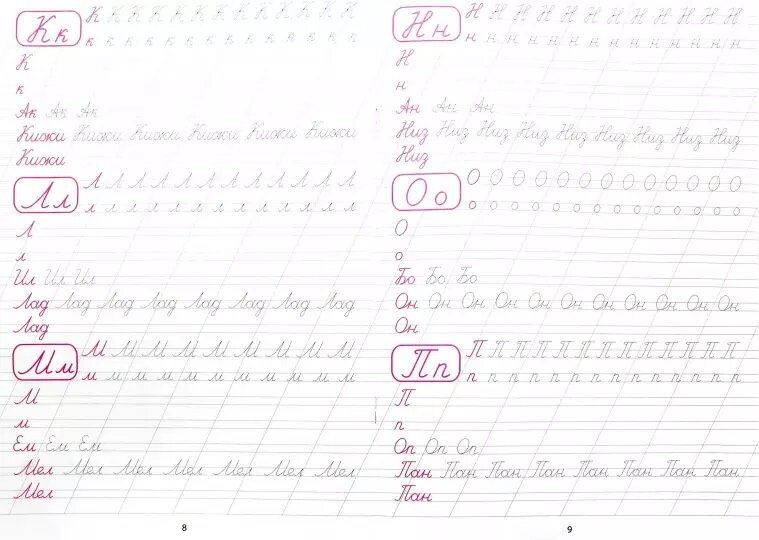 Кк
К К К К К К К К К К К К К
к к к к к к к к к к к к к
К
к
Ак Ак Ак
Кижи Кижи Кижи Кижи Кижи Кижи
Кижи
Лл
Л Л Л Л Л Л Л Л Л Л Л Л Л
л л л л л л л л л л л л л
Л
л
Ил Ил Ил
Лад Лад Лад Лад Лад Лад Лад Лад
Лад
Мм
М М М М М М М М М
м м м м м м м м м
М
м
Ем Ем Ем
Мел Мел Мел Мел Мел Мел Мел
Мел
8
Нн
Н Н Н Н Н Н Н Н Н Н Н Н
н н н н н н н н н н н н
Н
н
Ан Ан Ан
Низ Низ Низ Низ Низ Низ Низ Низ Низ
Низ
Оо
О О О О О О О О О О О О О О
о о о о о о о о о о о о о о
О
о
Бо Бо Бо
Он Он Он Он Он Он Он Он Он Он Он
Он
Пп
П П П П П П П П П П П П П
п п п п п п п п п п п п п
П
п
Оп Оп Оп
Пан Пан Пан Пан Пан Пан Пан Пан
Пан
9